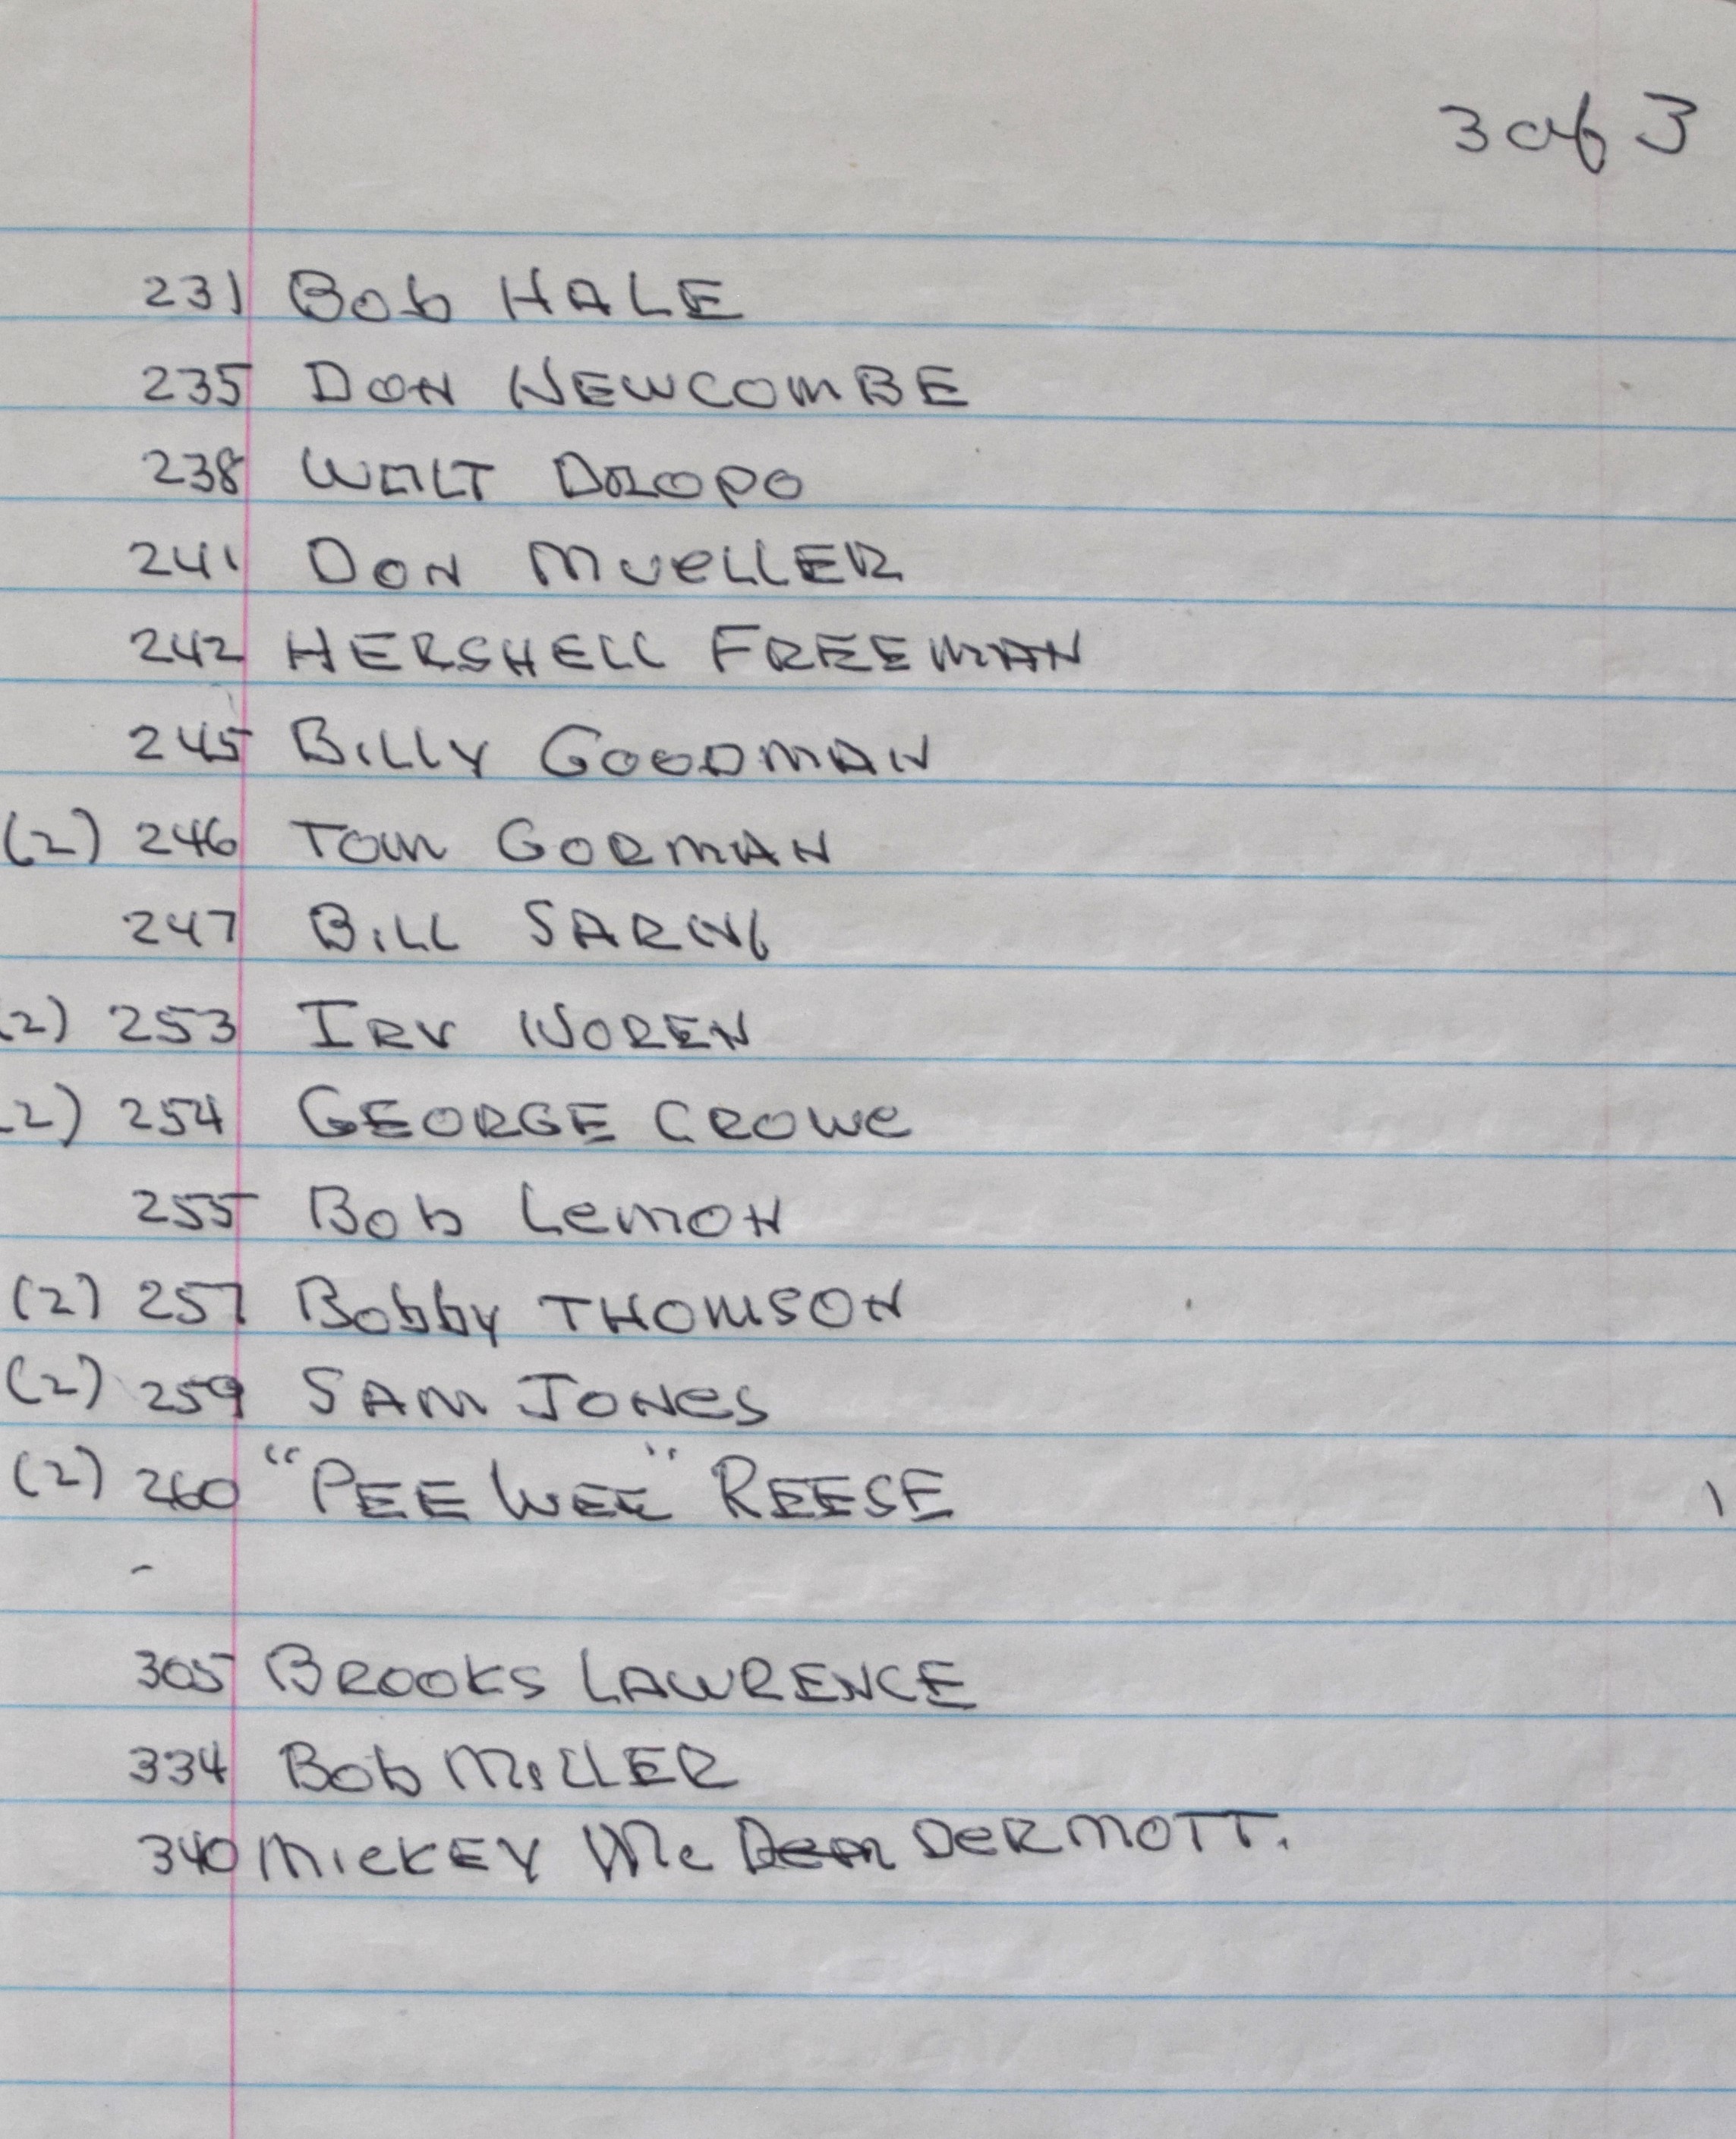 3 of 3
231 Bob HALE
235 DON NEWCOMBE
238 WALT DROPO
241 DON MUELLER
242 HERSHELL FREEMAN
245 BILLY GOODMAN
(2) 246 TOM GORMAN
247 BILL SARNI
(2) 253 IRV NOREN
(2) 254 GEORGE CROWE
255 Bob Lemon
(2) 257 Bobby THOMSON
(2) 259 SAM JONES
(2) 260 "PEE WEE" REESE
-
305 BROOKS LAWRENCE
334 Bob MILLER
340 MICKEY Mc Dem DERMOTT.